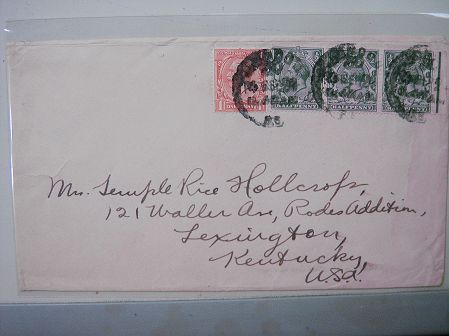 HALFPENNY
HALFPENNY
HALFPENNY
Mrs. Temple Rice Hollcroft,
121 Waller Av, Rodes Addition,
Lexington,
Kentucky,
U.S.A.